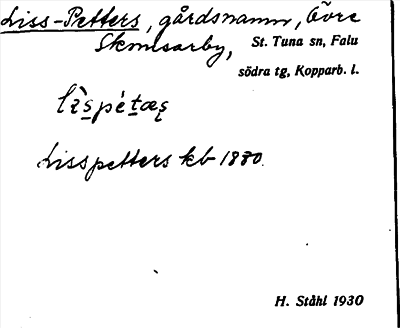 Liss-Petters, gårdsnamn, Övre
Skomsarby, St. Tuna sn, Falu
södra tg, Kopparb. l.
lìspétæs
Lisspetters kb 1880.
H. Ståhl 1930